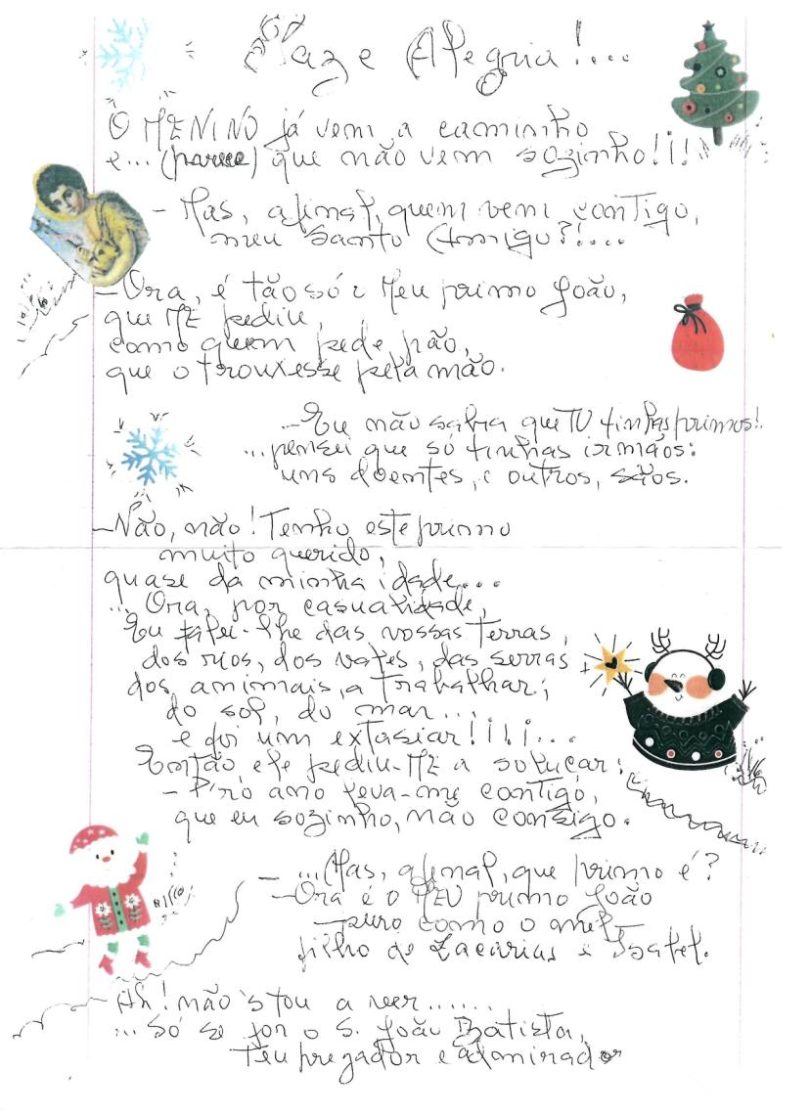 Paz e Alegria!....
O MENINO já vem a caminho
e... (parece) que não vem sozinho!¡!
- Mas, afinal, quem vem contigo,
meu Santo Amigo?!....
- Ora, é tão só o Meu primo João,
que ME pediu,
como quem pede pão,
que o trouxesse pela mão.
- Eu não sabia que TU tinhas primos!
...pensei que só tinhas irmãos:
uns doentes, e outros, sãos.
- Não, não! Tenho este primo
muito querido,
quase da minha idade...
... Ora, por casualidade,
Eu falei-lhe das vossas terras,
dos rios, dos vales, das serras
dos animais, a trabalhar,
do sol, do mar...
e foi um extasiar!¡!¡...
Então ele pediu-ME a soluçar:
- P'ró ano leva-me contigo,
que eu sozinho, não consigo.
- ...Mas, afinal, que primo é?
- Ora é o MEU primo João
- puro como o mel,
filho de Zacarias e Isabel.
- Ah! não 'stou a ver......
... Só se for o S. João Batista,
Teu pregador e admirador